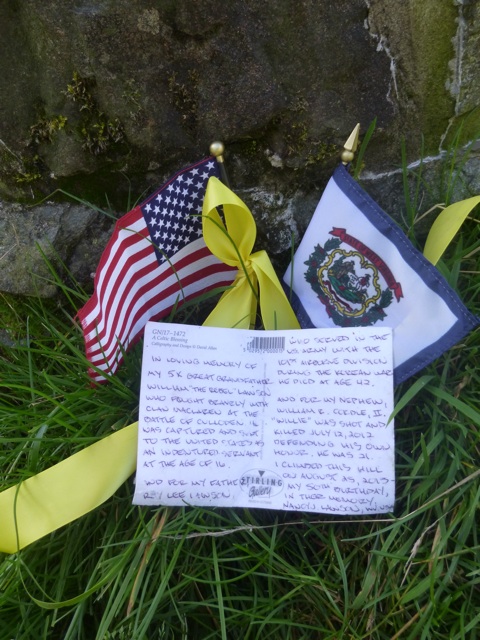 GN017-1472
A Celtic Blessing
IN LOVING MEMORY OF
MY 5X GREAT GRANDFATHER
WILLIAM "THE REBEL" LAWSON
WHO FOUGHT BRAVELY WITH
CLAN MACLAREN AT THE
BATTLE OF CULLODEN. HE
WAS CAPTURED AND SENT
TO THE UNITED STATES AS
AN INDENTURED SERVANT
AT THE AGE OF 16.
AND FOR MY FATHER
LEE LAWSON
WHO SERVED IN THE
US ARMY WITH THE
101ST AIRBORNE DIVISION
DURING THE KOREAN WAR
HE DIED AT AGE 42.
AND FOR MY NEPHEW
WILLIAM E. II.
"WILLIE" WAS SHOT AND
KILLED JULY 12, 2012
DEFENDING HIS OWN
HONOR. HE WAS 21.
I CLIMBED THIS HILL
ON AUGUST 25, 2013
MY 50TH BIRTHDAY,
IN THEIR MEMORY.
NANCY LAWSON,
STIRLING
Gallery